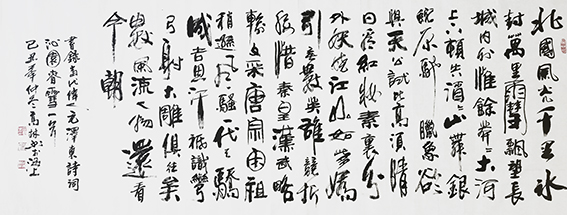 北國風光千里冰
封萬里雪飄望長
城内外惟餘莽莽大河
上下頓失滔滔山舞銀
蛇原馳蠟象欲
與天公試比高須晴
日看紅裝素裹分
外妖嬈江山如此多嬌
引無數英雄競折
腰惜秦皇漢武略
輸文采唐宗宋祖
稍遜風騷一代天驕
成吉思汗祗識彎
弓射大雕俱往矣
數風流人物還看
今朝
書錄當代偉人毛澤東詩詞
沁園春雪一首
己丑年仲冬高林書海上